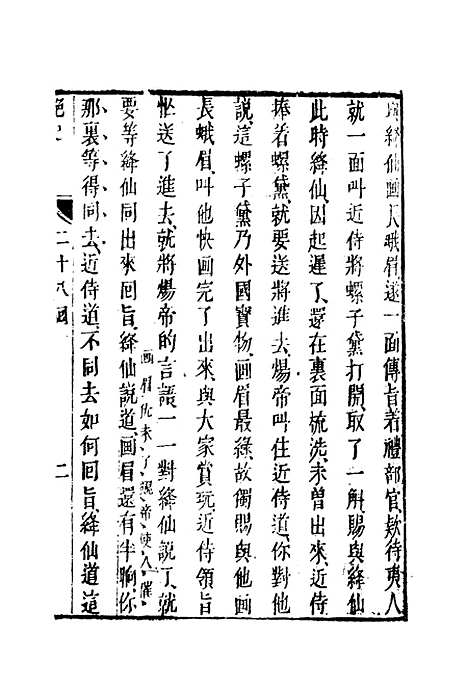 絳仙画人蛾眉遂一面傳旨着禮部官欵待夷人
就一面叫近侍將螺子黛打開取了一斛賜與絳仙
此時絳仙因起遲了還在裏面梳洗未曽出來近侍
捧着螺黛就要送將進去煬帝叫住近侍道你對他
說這螺子黛乃外國寳物画眉最綠故獨賜與他画
長蛾眉叫他快画完了出來與大家賞玩近侍領旨
忙送了進去就將煬帝的言語一一對絳仙說了就
画眉化未了現帝使人催
要等絳仙同出來囘旨絳仙說道画眉還有半晌你
那裏等得同去近侍道不同去如何囘旨絳仙道這
艷史
二十八囘
二